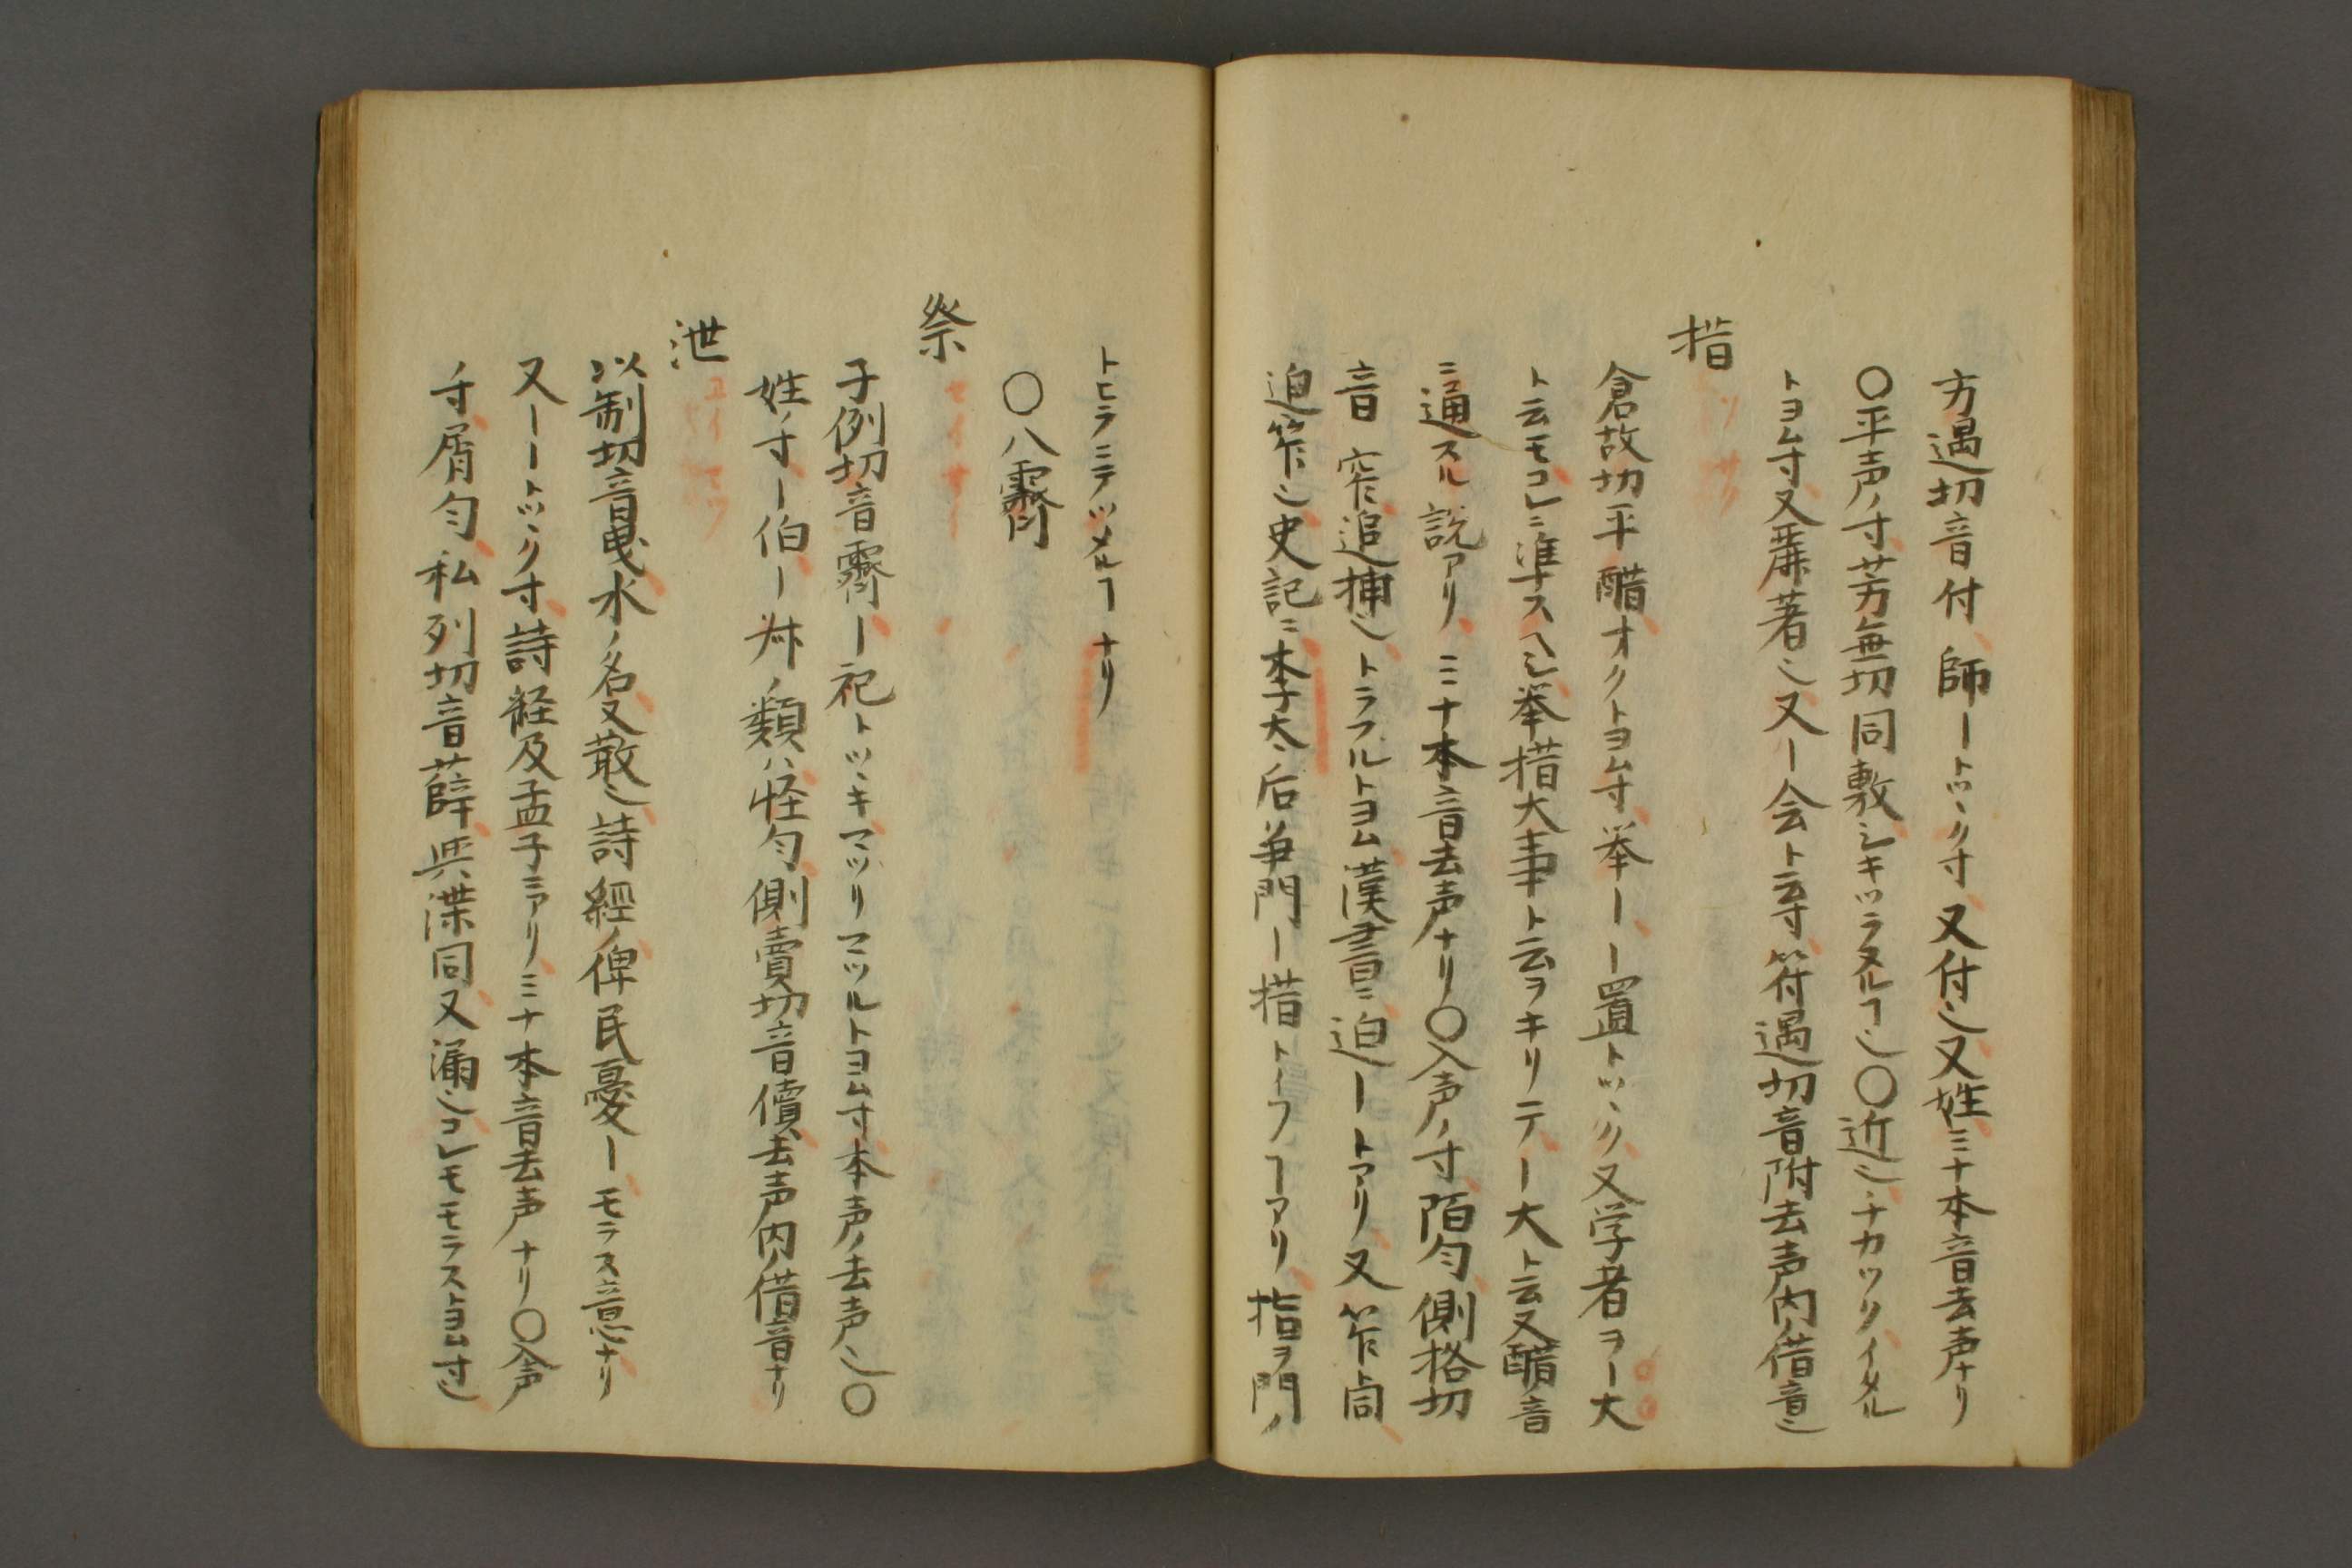 方遇切音付師ートツヽク寸又付也又姓ミナ本音去声ナリ
〇平声ノ寸芳無切同敷シキツラヌルヿ也〇近也チカツクイタル
トヨム寸又麗著也又ー会ト云寸符遇切音附去声内ノ借音也
措 ソ サク
倉故切平醋オクトヨム寸挙ーー置トツヽク又学者ヲー大
ト云モコレニ準スヘシ挙措大事ト云ヲキリテー大ト云又醋ノ音
ニ通スル説アリミナ本音去声ナリ〇入声ノ寸陌匀側格切
音窄追捕也トラフルトヨム漢書ニ迫ートアリ又笮ト同
迫笮也史記ニ李太后争門ー措トイフヿアリ指ヲ門ノ
トヒラニテツメルヿナリ
〇八霽
祭 セイ サイ
子例切音霽ー祀トツヽキマツリマツルトヨム寸本声ノ去声也〇
姓ノ寸ー伯ー舛ノ類ハ怪匀側賣切音債去声内ノ借音ナリ
泄 エイ セツ
以制切音曳水ノ名又散也詩經ノ俾民憂ーモラス意ナリ
又ーートツヽク寸詩経及孟子ニアリミナ本音去声ナリ〇入声
寸屑匀私列切音薛与渫同又漏也コレモモラストヨム寸也